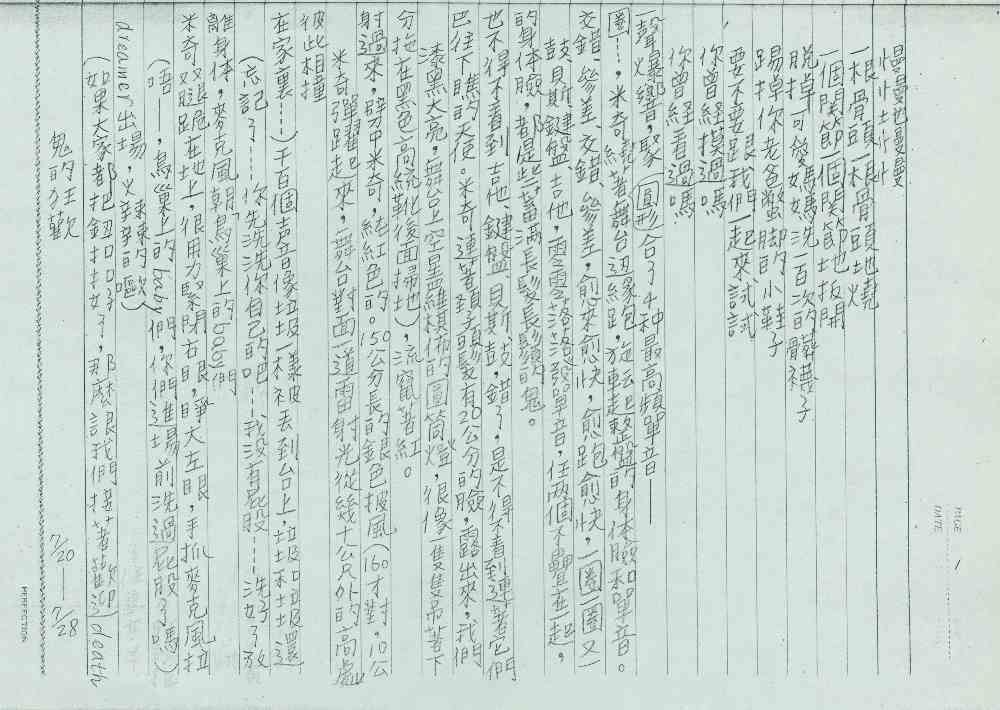 PAGE 1
DATE
慢慢地慢慢
一根骨頭一根骨頭地燒
一個關節一個關節地扳開
脫掉可愛媽媽洗一百次的髒襪子
踢掉你老爸蹩腳的小鞋子
要不要跟我們一起來試試
你曾經摸過嗎
你曾經看過嗎
一聲爆響,聚圓形合了4種最高頻單音——
圈……,米奇繞著舞台邊緣跑,旋起整盤的身体臉和單音。
交錯、參差、交錯、參差,愈來愈快,愈跑愈快,一圈一圈又一
鼓、貝斯、鍵盤、吉他,零零落落發單音,任兩個不疊在一起,
的身体臉,都是些蓄滿長髮長鬍的鬼。
也不得不看到吉他、鍵盤、貝斯、鼓,錯了,是不得不看到連著它們
巴往下瞧的天使。米奇連著頭髮有20公分的臉,露出來,我們
漆黑大亮,舞台上空呈縱橫的圓筒燈,很像一隻隻吊著下
分拖在黑色高統靴後面掃地),流竄著紅。
射過來,劈中米奇,純紅色的。150公分長的銀色披風(160才對,10公
米奇彈躍起來,舞台對面一道雷射光從幾十公尺外的高處
彼此相撞
在家裏……)千百個声音像垃圾一樣被丟到台上,垃圾和垃圾還
(忘記了……你先洗洗你自己的吧……我沒有屁股……洗了好了放
離身体,麥克風朝鳥巢上的baby們
米奇双腿跪在地上,很用力緊閉右眼,睜大左眼,手抓麥克風拉
(唔——,鳥巢上的baby們,你們進場前洗過屁股了嗎)
dreamer出場,火辣辣的歐嘔)
(如果大家都把鈕扣扣好了,那麼讓我們接著歡迎)death
鬼的狂歡
7/20——7/28
PERFECTION